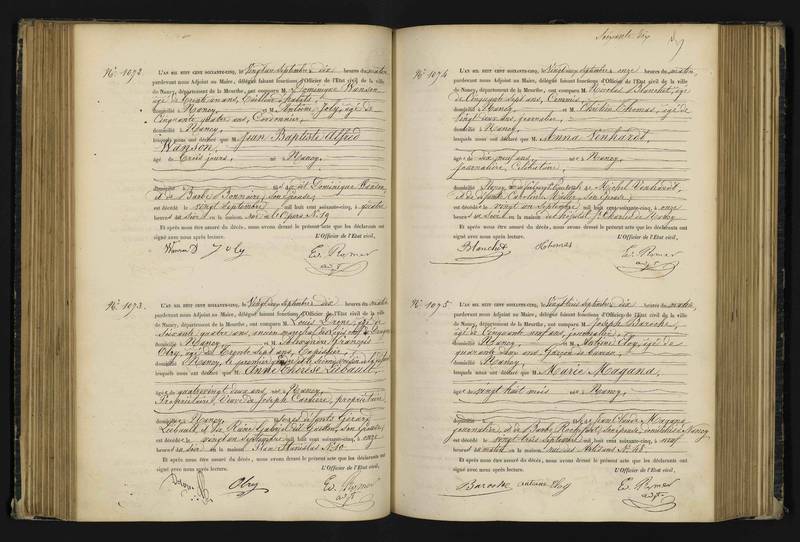 Nº 1072.
L'AN MIL HUIT CENT SOIXANTE-CINQ, le Vingt un Septembre dix heures du matin,
pardevant nous Adjoint au Maire, délégué faisant fonctions d'Officier de l'État civil de la ville
de Nancy, département de la Meurthe, ont comparu M. Dominique Wanson
âgé de trente un ans,
domicilié à Nancy, et M. Antoine Joly, âgé de
Cinquante quatre ans, Cordonnier,
domicilié à Nancy,
lesquels nous ont déclaré que M. Jean Baptiste Alfred
Wanson,
âgé de trois jours, né à Nancy,
domicilié fils de Dominique Wanson
et de Barbe Bonnaire, son épouse,
est décédé le vingt Septembre mil huit cent soixante-cinq, à quatre
heures du soir en la maison Nº 19
Et après nous être assuré du décès, nous avons dressé le présent acte que les déclarants ont
signé avec nous après lecture. L'Officier de l'État civil,
Wanson D Joly Ev. Rymer
adjt
Nº 1073.
L'AN MIL HUIT CENT SOIXANTE-CINQ, le Vingt deux Septembre dix heures du matin
pardevant nous Adjoint au Maire, délégué faisant fonctions d'Officier de l'État civil de la ville
de Nancy, département de la Meurthe, ont comparu M. Louis Drone, âgé de
Soixante quatre ans, ancien
domicilié à Nancy et M. Alexandre François
Obry, âgé de Trente Sept ans,
domicilié à Nancy,
lesquels nous ont déclaré que M. Anne Thérèse Liébault,
âgée de quatre vingt deux ans, née à Nancy,
Propriétaire, Veuve de Joseph
domiciliée à Nancy,
Liébault, et son épouse,
est décédée le vingt un Septembre mil huit cent soixante-cinq, à onze
heures du soir en la maison Place Stanislas Nº 10
Et après nous être assuré du décès, nous avons dressé le présent acte que les déclarants ont
signé avec nous après lecture. L'Officier de l'État civil,
Obry Ev. Rymer
adjt
Soixante dix
Nº 1074
L'AN MIL HUIT CENT SOIXANTE-CINQ, le Vingt deux Septembre onze heures du matin,
pardevant nous Adjoint au Maire, délégué faisant fonctions d'Officier de l'État civil de la ville
de Nancy, département de la Meurthe, ont comparu M. Nicolas Blanchet, âgé
de Cinquante Sept ans, Commis,
domicilié à Nancy et M. Chrétien Thomas, âgé de
Vingt deux ans, journalier,
domicilié à Nancy,
lesquels nous ont déclaré que M. Anna Lenhardt,
âgée de dix neuf ans, née à
journalière, Célibataire,
domiciliée à Nancy Michel Lenhardt
et de défunte Catherine Müller, son épouse,
est décédée le vingt un Septembre mil huit cent soixante-cinq, à onze
heures du soir en la maison de l'hospice St Charles de Nancy
Et après nous être assuré du décès, nous avons dressé le présent acte que les déclarants ont
signé avec nous après lecture. L'Officier de l'État civil,
Blanchet Thomas Ev. Rymer
adjt
Nº 1075
L'AN MIL HUIT CENT SOIXANTE-CINQ, le Vingt trois Septembre dix heures du matin,
pardevant nous Adjoint au Maire, délégué faisant fonctions d'Officier de l'État civil de la ville
de Nancy, département de la Meurthe, ont comparu M. Joseph Baroche,
âgé de Cinquante neuf ans,
domicilié à Nancy, et M. Antoine Eloy, âgé de
quarante deux ans, garçon de bureau,
domicilié à Nancy
lesquels nous ont déclaré que M. Marie Magana,
âgée de vingt huit mois née à Nancy,
domiciliée fille de Jean Claude Magana
journalier, et de Barbe son épouse, domiciliés à Nancy
est décédée le vingt trois Septembre mil huit cent soixante-cinq, à neuf
heures du matin en la maison rue des Artisans Nº 48
Et après nous être assuré du décès, nous avons dressé le présent acte que les déclarants ont
signé avec nous après lecture. L'Officier de l'État civil,
Baroche antoine Eloy Ev. Rymer
adjt